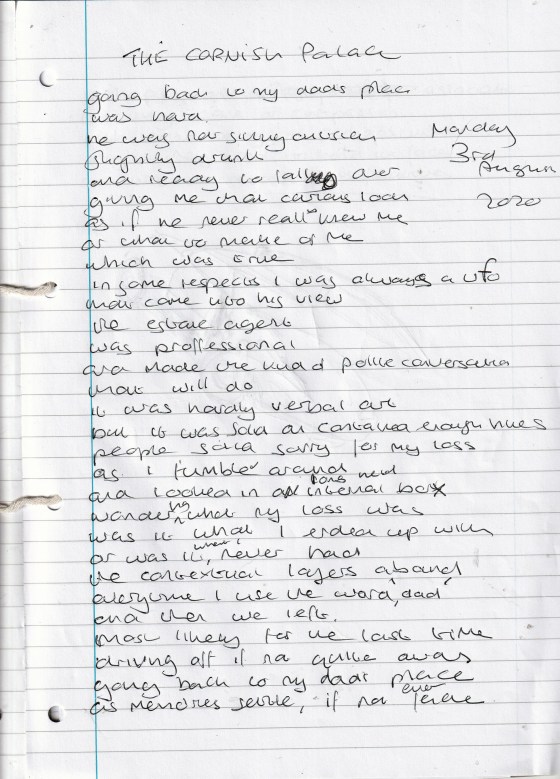 THE CORNISH Palace
going back to my dads place
was hard.
he was not sitting outside
slightly drunk
Monday
3rd
August
2020
and ready to fall over
giving me that curious look
as if he never really knew me
or what to make of me
which was true
in some respects I was always a ufo
that came into his view
the estate agent
was proffessional
and made the kind of polite conversation
that will do
it was hardly verbal art
but it was sold an contained enough hues
people said sorry for my loss
as I fumble around
and looked in an internal box
wondering what my loss was
was it what I ended up with
or was it, what I never had
the contextual layers abound
everytime I use the word, 'dad'
and then we left.
most likely for the last time
driving off if not quite away
going back to my dads place
as memories settle, if not ever fade